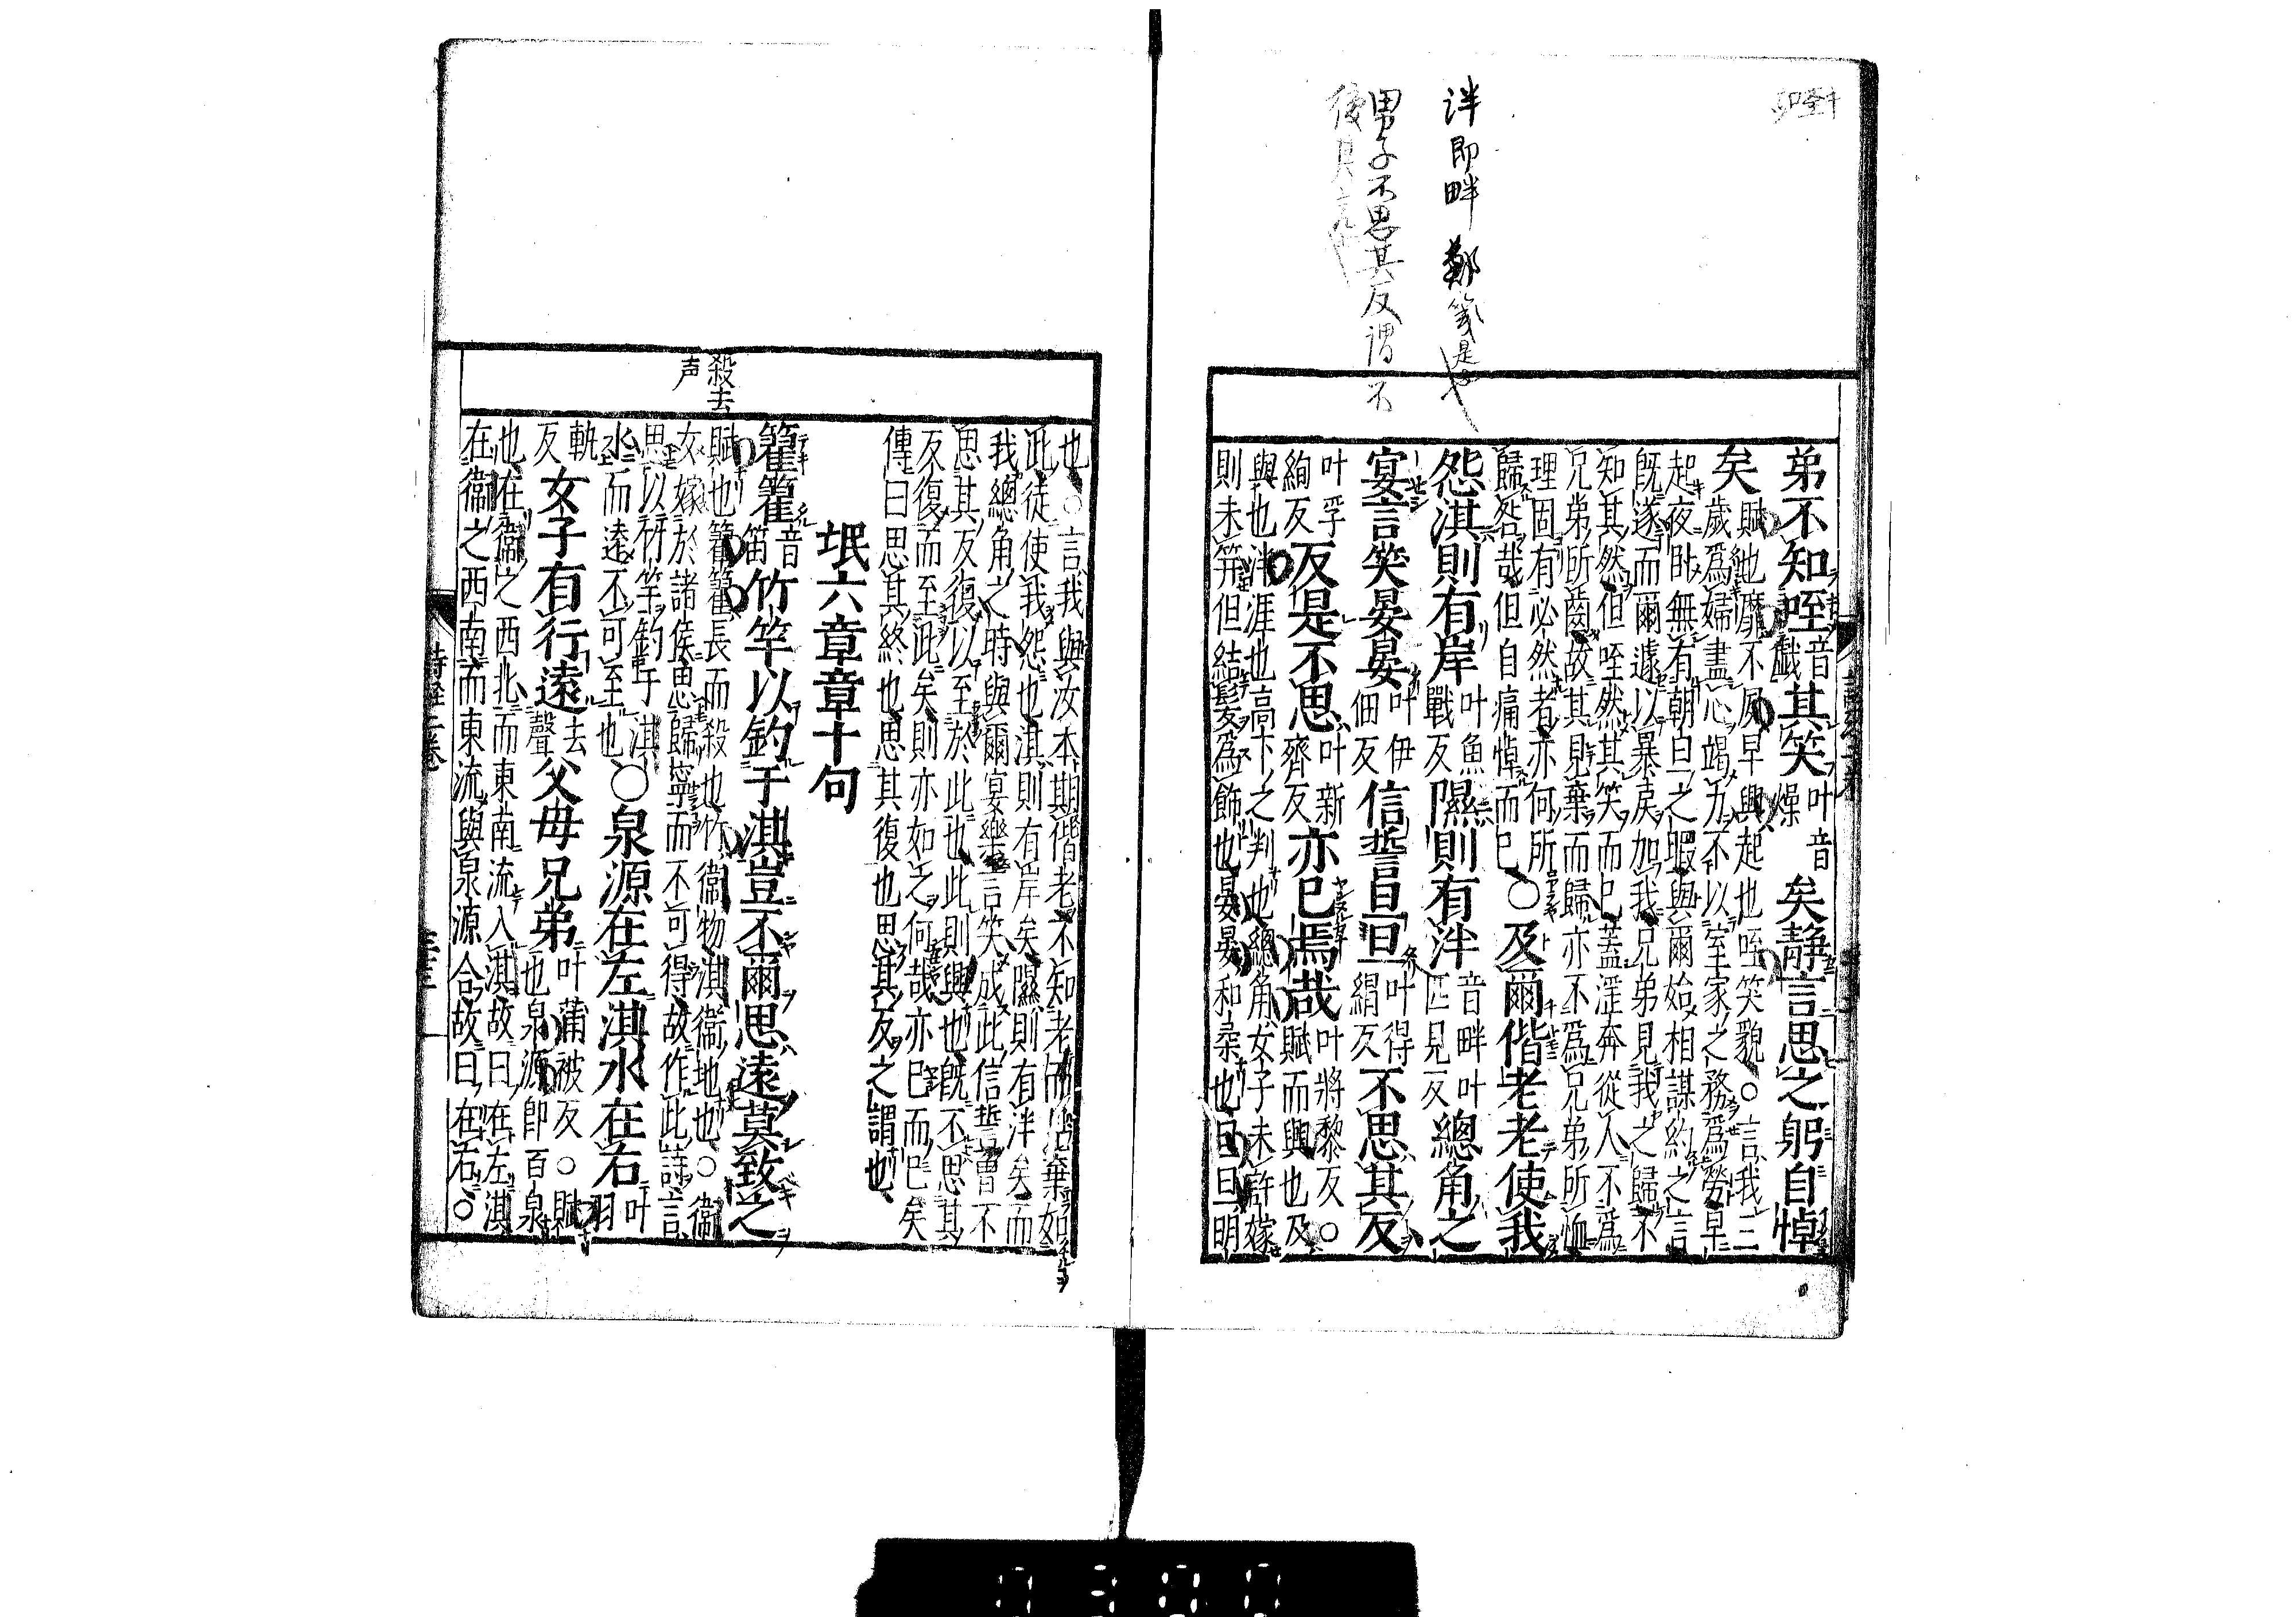 泮即畔鄭箋是也
男子不思其反謂不
弟不知咥音戲其笑叶音燥矣靜言思之躬自悼
矣賦也靡不夙早興起也咥笑貌○言我三
歲爲婦盡心竭力不以室家之務爲勞早
起夜臥無有朝旦之暇與爾始相謀約之言
既遂而爾遽以暴戾加我兄弟見我之歸不
知其然但咥然其笑而已蓋淫奔從人不爲
兄弟所齒故其見棄而歸亦不爲兄弟所恤
理固有必然者亦何所
歸咎哉但自痛悼而已○及爾偕老老使我
怨淇則有岸叶魚戰反隰則有泮音畔叶匹見反總角之
宴言笑晏晏叶伊佃反信誓旦旦叶得絹反不思其反
叶孚絢反反是不思叶新齎反亦已焉哉叶將黎反○賦而興也及
與也泮涯也高下之判也總角女子未許嫁
則未筓但結髮爲飾也晏晏和柔也旦旦明
也○言我與汝本期偕老不知老而見棄如
此徒使我怨也淇則有岸矣隰則有泮矣而
我總角之時與爾宴樂言笑成此信誓曾不
思其反復以至於此也此則興也既不思其
反復而至此矣則亦如之何哉亦已而已矣
傳曰思其終也思其復也思其反之謂也
氓六章章十句
殺去声
籊籊音笛竹竿以釣于淇豈不爾思遠莫致之
賦也籊籊長而殺也竹衛物淇衛地也○衛
女嫁於諸侯思歸寧而不可得故作此詩言
思以竹竿釣于淇
水而遠不可至也○泉源在左淇水在右叶羽
軌反女子有行遠去聲父母兄弟叶蒲彼反○賦也泉源即百泉
也在衛之西北而東南流入淇故曰在左淇
在衛之西南而東流與泉源合故曰在右○
詩經二卷